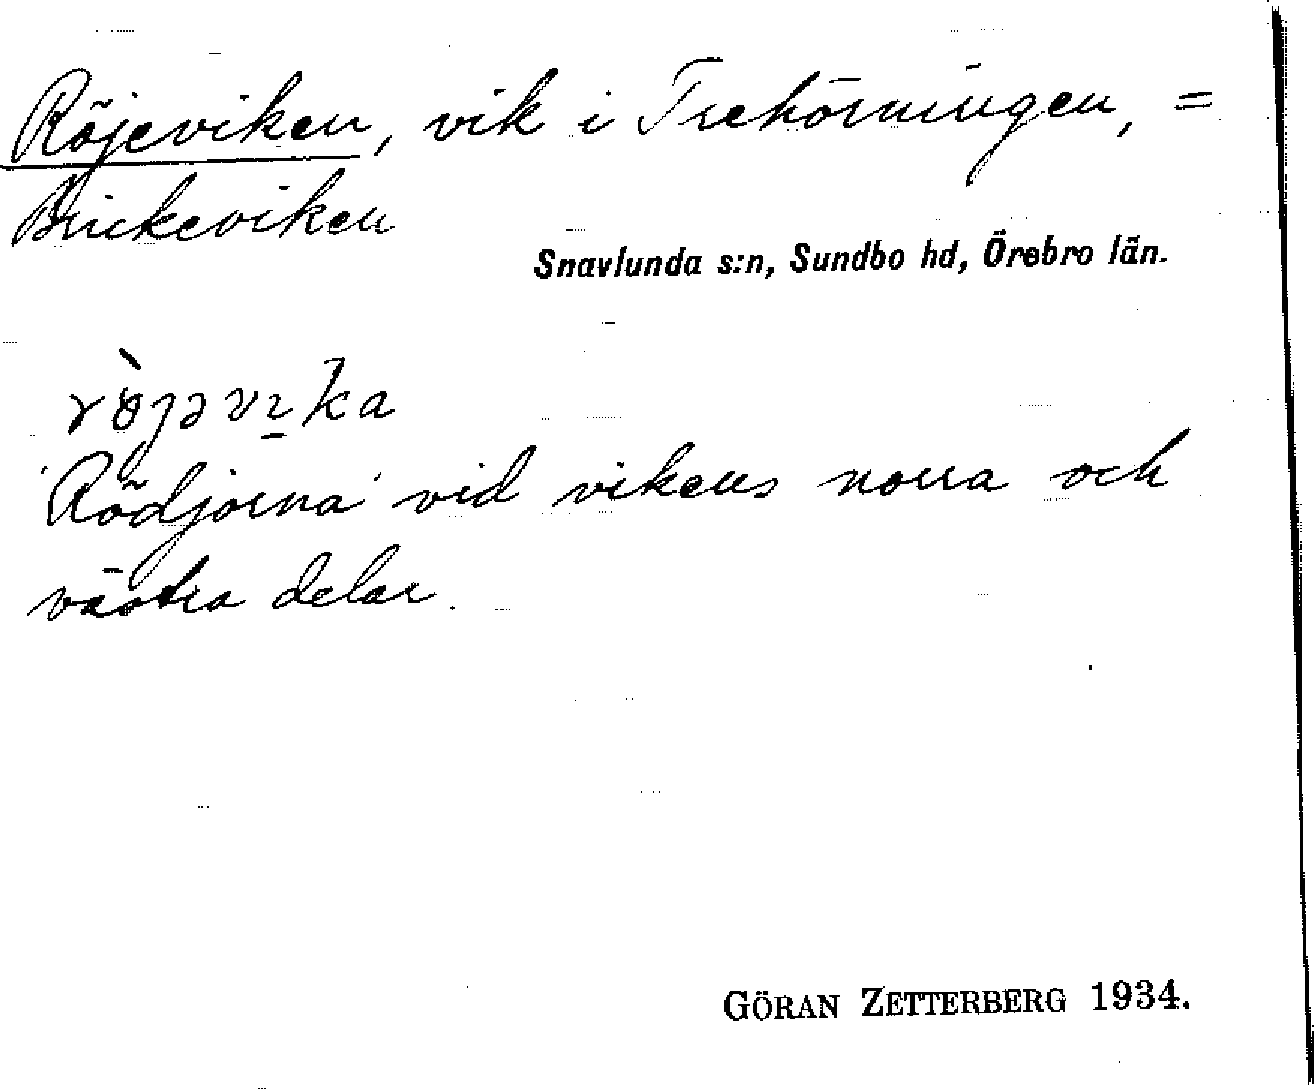 Röjeviken, vik i Trehörningen, =
Brickeviken
Snavlunda s:n, Sundbo hd, Örebro län.
rö̀jəvika
'Rödjorna' vid vikens norra och
västra delar.
GÖRAN ZETTERBERG 1934.